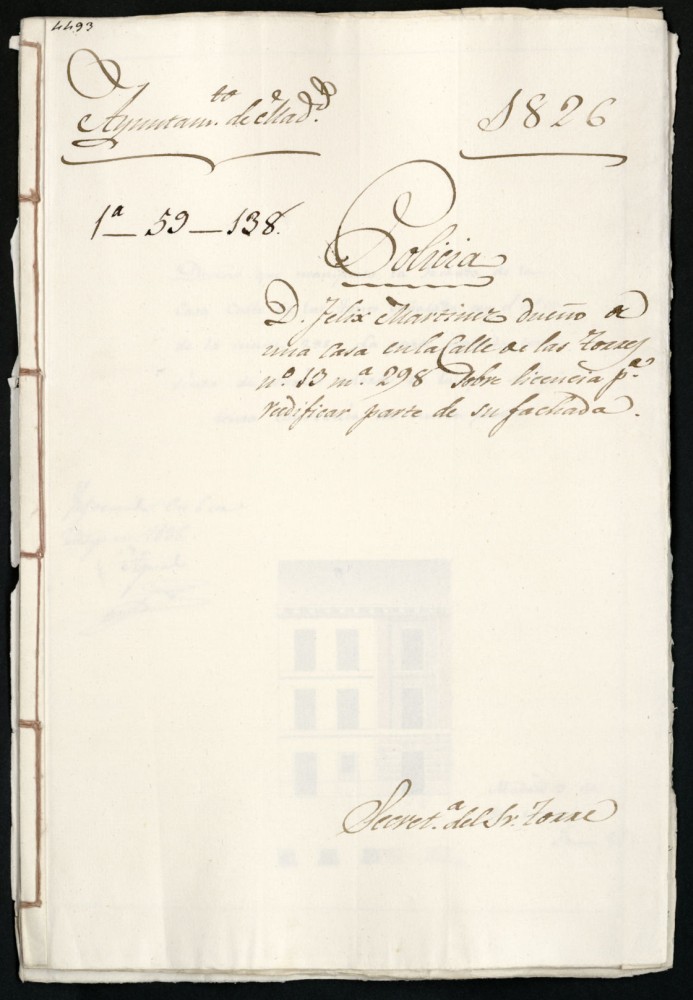 4493
Ayuntam.to de Mad.d
1826
1ª_59_138.
Policia
D. Felix Martinez dueño de
una casa en la Calle de las Torres
nº. 13 mª. 298 Sobre licencia pª.
redificar parte de su fachada.
Secret.ª del Sr. Torre